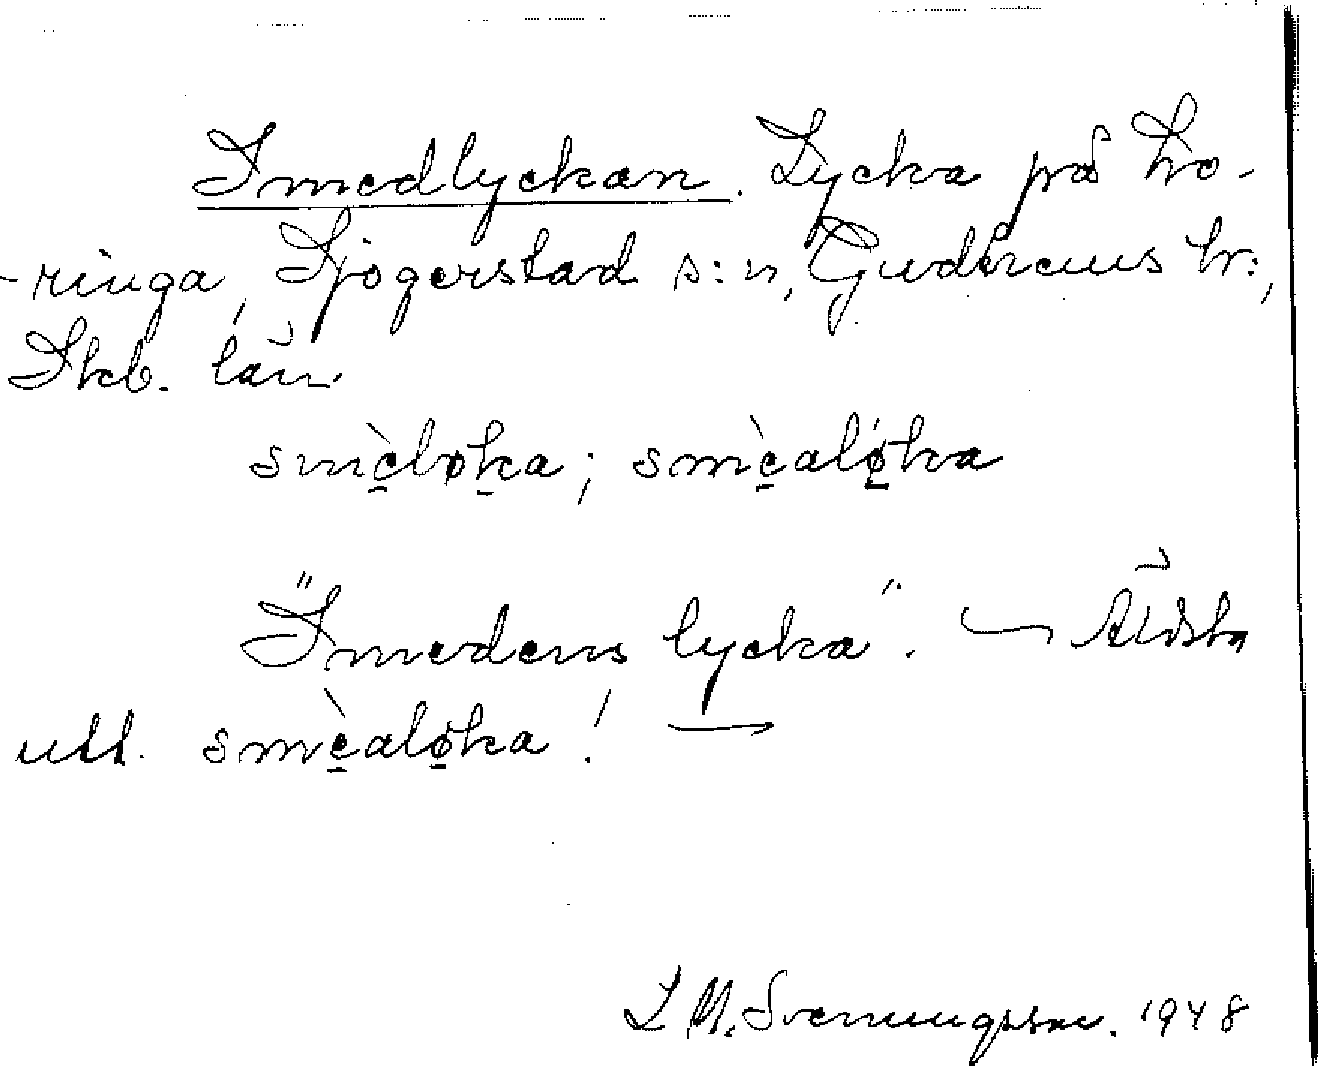 Smedlyckan. Lycka på Lo-
-ringa, Sjögerstad s:n, Gudhems hr:,
Skb. län
smè̱løka; smè̱alǿ̱ka
"Smedens lycka". Äldsta
utt. smè̱alø̱ka! →
L M. Svenungsson. 1948